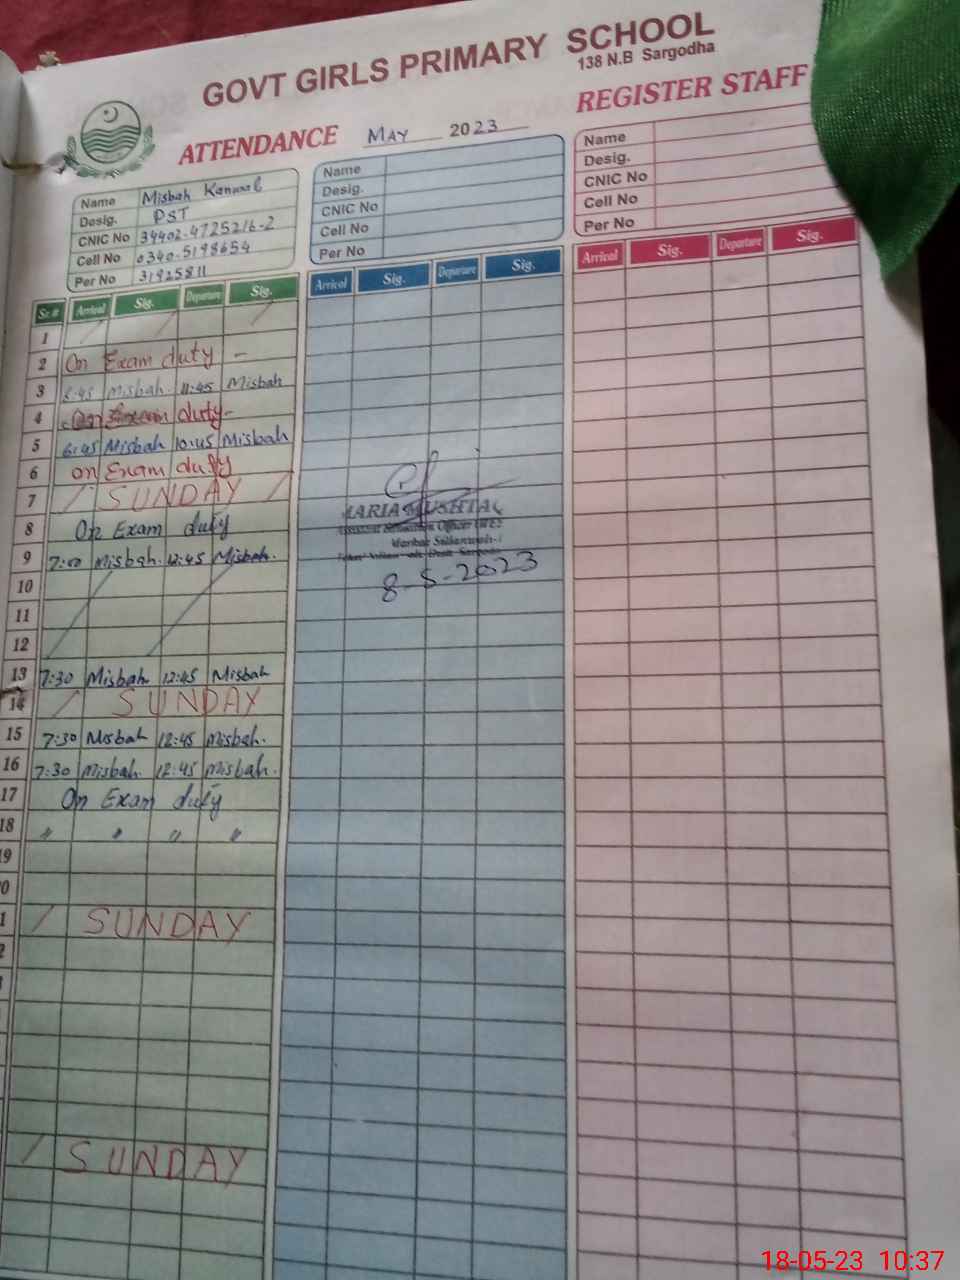 GOVT GIRLS PRIMARY SCHOOL
138 N.B Sargodha
ATTENDANCE MAY 2023 REGISTER STAFF
Name Misbah Kanwal
Desig. PST
CNIC No 34402-4725216-2
Cell No 0340-5198654
Per No 31925811
Name
Desig.
CNIC No
Cell No
Per No
Name
Desig.
CNIC No
Cell No
Per No
Sr.# Arrival Sig. Departure Sig. Arrival Sig. Departure Sig. Arrival Sig. Departure Sig.
1
2 On Exam duty -
3 6:45 Misbah. 11:45 Misbah
4 On Exam duty-
5 6:45 Misbah 10:45 Misbah
6 on Exam duty
7 SUNDAY
8 On Exam duty
9 7:00 Misbah. 12:45 Misbah.
MARIA MUSHTAQ
8-5-2023
10
11
12
13 7:30 Misbah 12:45 Misbah
14 SUNDAY
15 7:30 Misbah 12:45 Misbah.
16 7:30 Misbah. 12:45 Misbah.
17 On Exam duty
18 " " " "
9
0
1 SUNDAY
2
SUNDAY
18-05-23 10:37